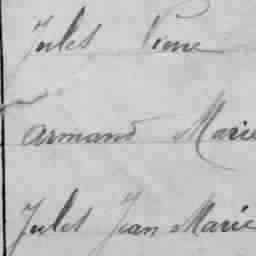 Jules Pierre
Armand Marie
Jules Jean Marie